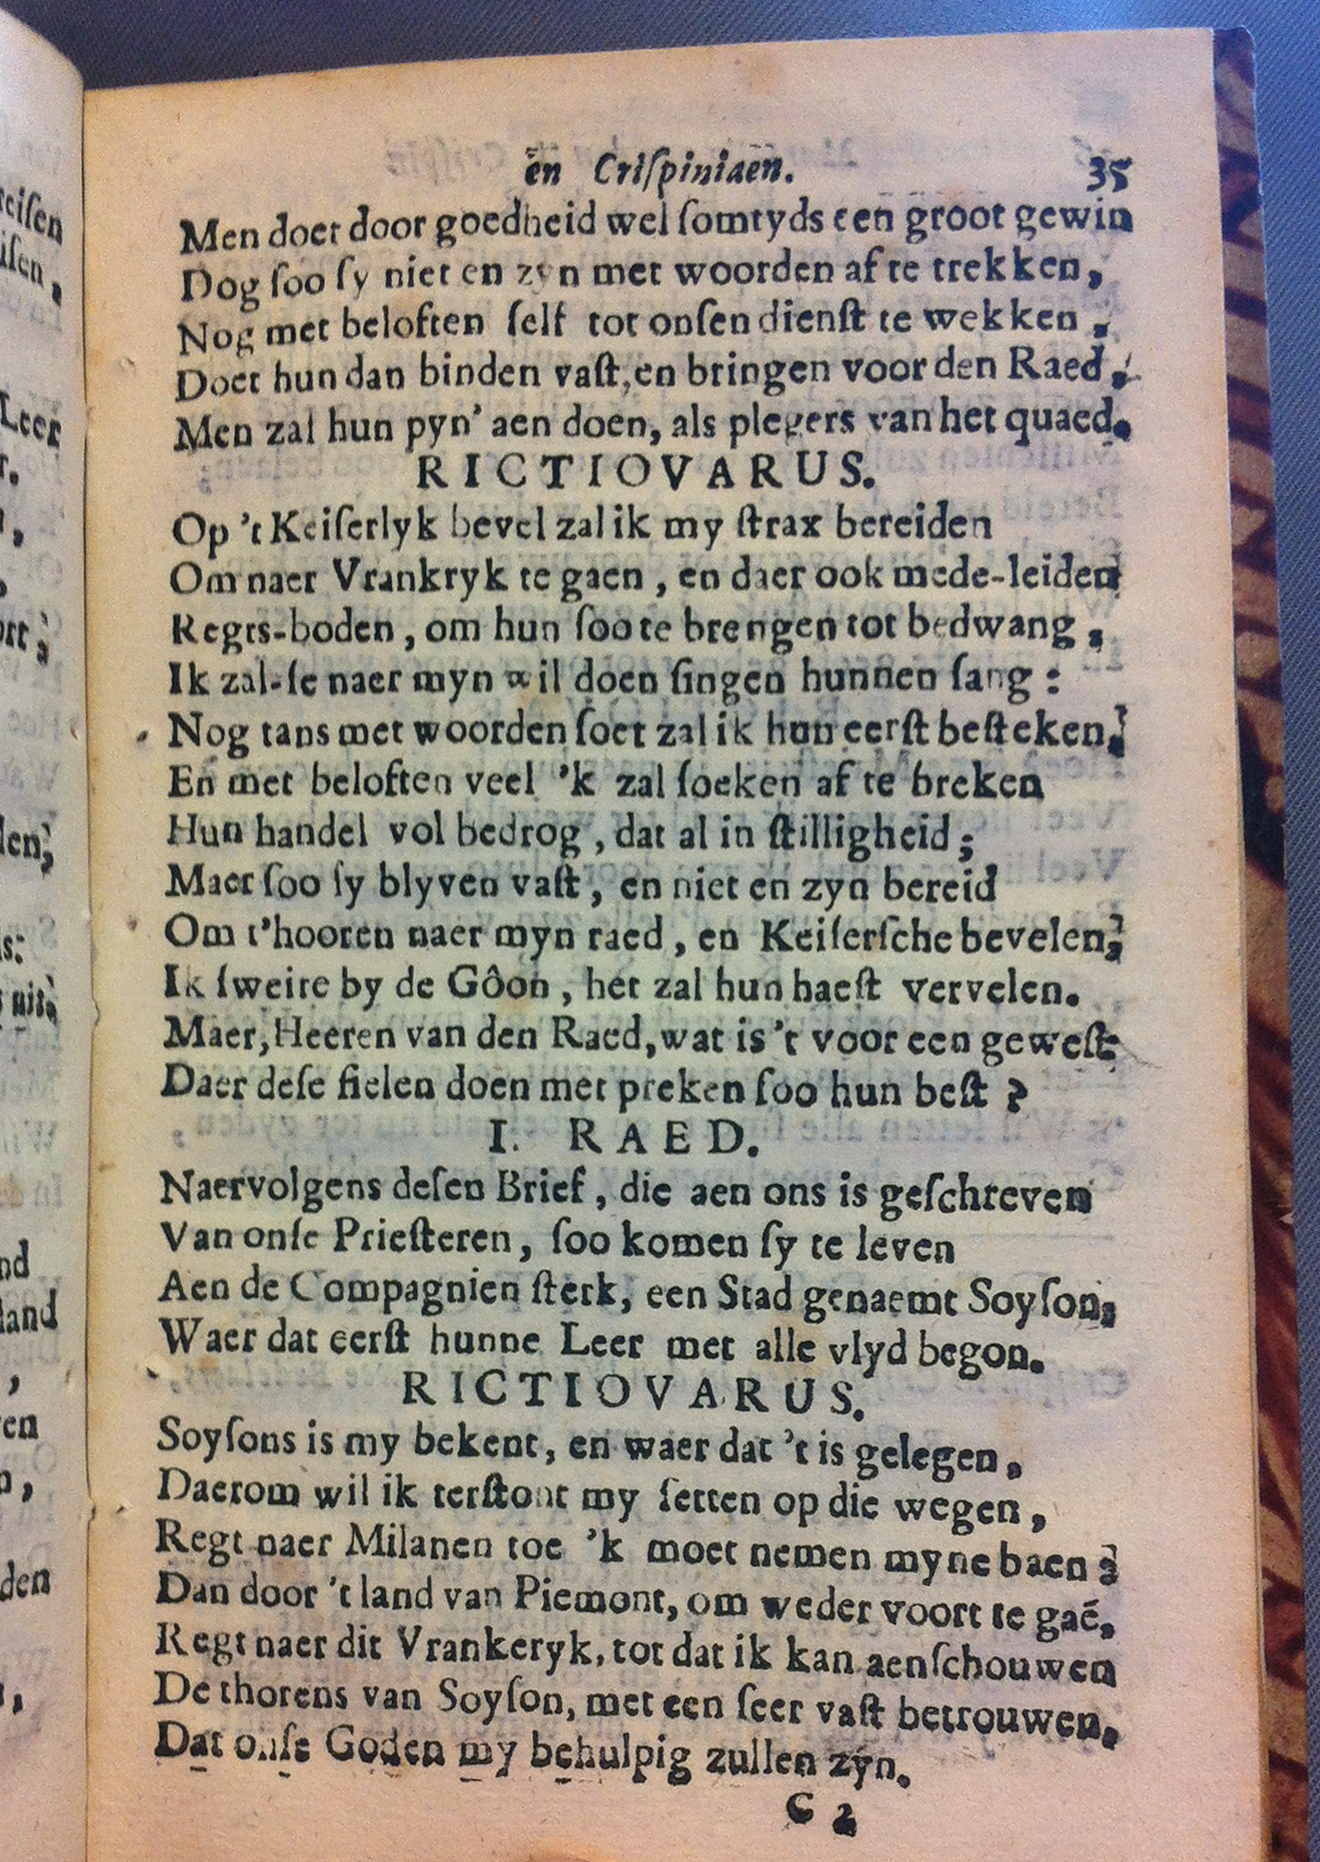 en Criſpiniaen. 35
Men doet door goedheid wel ſomtyds een groot gewin
Dog ſoo ſy niet en zyn met woorden af te trekken,
Nog met beloften ſelf tot onſen dienſt te wekken,
Doet hun dan binden vaſt, en bringen voor den Raed,
Men zal hun pyn' aen doen, als plegers van het quaed.
RICTIOVARUS.
Op 't Keiſerlyk bevel zal ik my ſtrax bereiden
Om naer Vrankryk te gaen, en daer ook mede-leiden
Regts-boden, om hun ſoo te brengen tot bedwang,
Ik zal-ſe naer myn wil doen ſingen hunnen ſang:
Nog tans met woorden ſoet zal ik hun eerſt beſteken,
En met beloften veel 'k zal ſoeken af te breken
Hun handel vol bedrog, dat al in ſtilligheid;
Maer ſoo ſy blyven vaſt, en niet en zyn bereid
Om t'hooren naer myn raed, en Keiſerſche bevelen,
Ik ſweire by de Gôon, het zal hun haeſt vervelen.
Maer, Heeren van den Raed, wat is 't voor een geweſt
Daer deſe fielen doen met preken ſoo hun beſt?
I. RAED.
Naervolgens deſen Brief, die aen ons is geſchreven
Van onſe Prieſteren, ſoo komen ſy te leven
Aen de Compagnien ſterk, een Stad genaemt Soyſon,
Waer dat eerſt hunne Leer met alle vlyd begon.
RICTIOVARUS.
Soyſons is my bekent, en waer dat 't is gelegen,
Daerom wil ik terſtont my ſetten op die wegen,
Regt naer Milanen toe 'k moet nemen myne baen;
Dan door 't land van Piemont, om weder voort te gaē,
Regt naer dit Vrankeryk, tot dat ik kan aenſchouwen
De thorens van Soyſon, met een ſeer vaſt betrouwen,
Dat onſe Goden my behulpig zullen zyn.
C 2